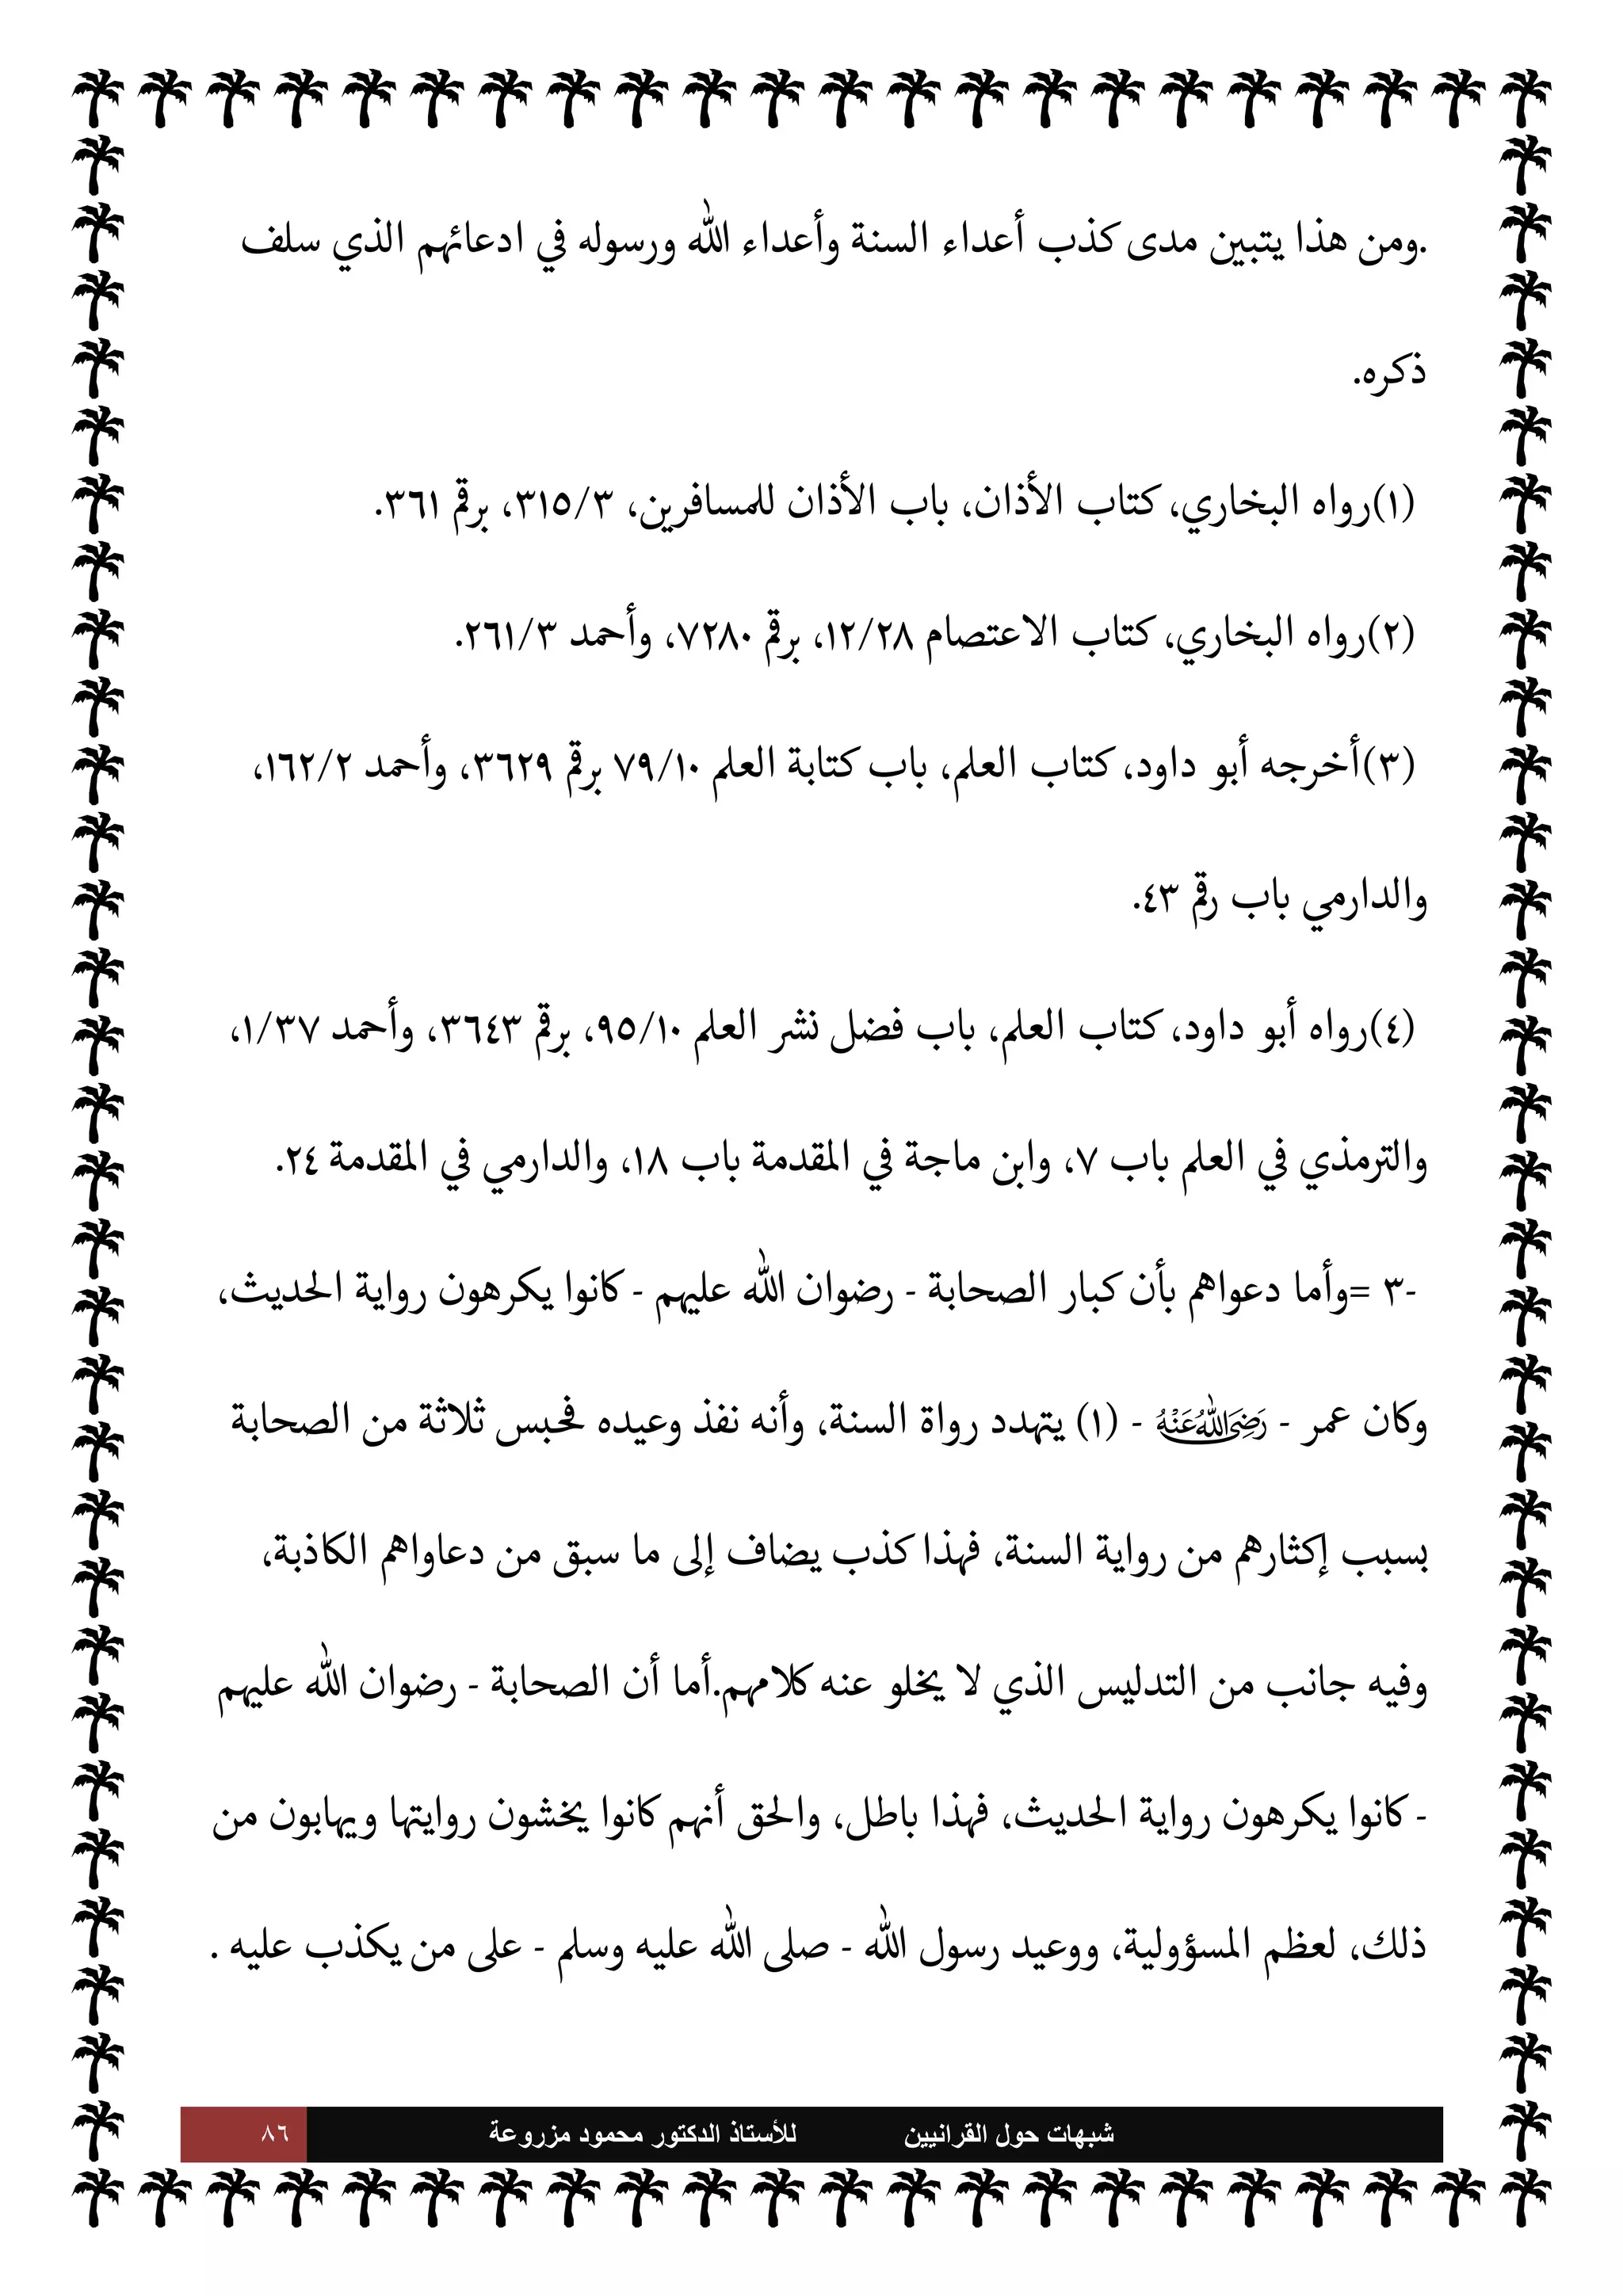 .ومن هذا يتبين مدى كذب أعداء السنة وأعداء الله ورسوله في ادعائهم الذي سلف
ذكره.
(١)رواه البخاري، كتاب الأذان، باب الأذان للمسافرين، ٣١٥/٣، برقم ٣٦١.
(٢)رواه البخاري، كتاب الاعتصام ١٢/٢٨، برقم ٧٢٨٠، وأحمد ٢٦١/٣.
(٣)أخرجه أبو داود، كتاب العلم، باب كتابة العلم ٧٩/١٠ برقم ٣٦٢٩، وأحمد ١٦٢/٢،
والدارمي باب رقم ٤٣.
(٤)رواه أبو داود، كتاب العلم، باب فضل نشر العلم ٩٥/١٠، برقم ٣٦٤٣، وأحمد ١/٣٧،
والترمذي في العلم باب ٧، وابن ماجة في المقدمة باب ١٨، والدارمي في المقدمة ٢٤.
-٣ =وأما دعواهم بأن كبار الصحابة - رضوان الله عليهم - كانوا يكرهون رواية الحديث،
وكان عمر - رضي الله عنه - (١) يتهدد رواة السنة، وأنه نفذ وعيده فحبس ثلاثة من الصحابة
بسبب إكثارهم من رواية السنة، فهذا كذب يضاف إلى ما سبق من دعاواهم الكاذبة،
وفيه جانب من التدليس الذي لا يخلو عنه كلامهم.أما أن الصحابة - رضوان الله عليهم
- كانوا يكرهون رواية الحديث، فهذا باطل، والحق أنهم كانوا يخشون روايتها ويهابون من
ذلك، لعظم المسؤولية، ووعيد رسول الله - صلى الله عليه وسلم - على من يكذب عليه .
شبهات حول القرانيين للأستاذ الدكتور محمود مزروعة ٨٦